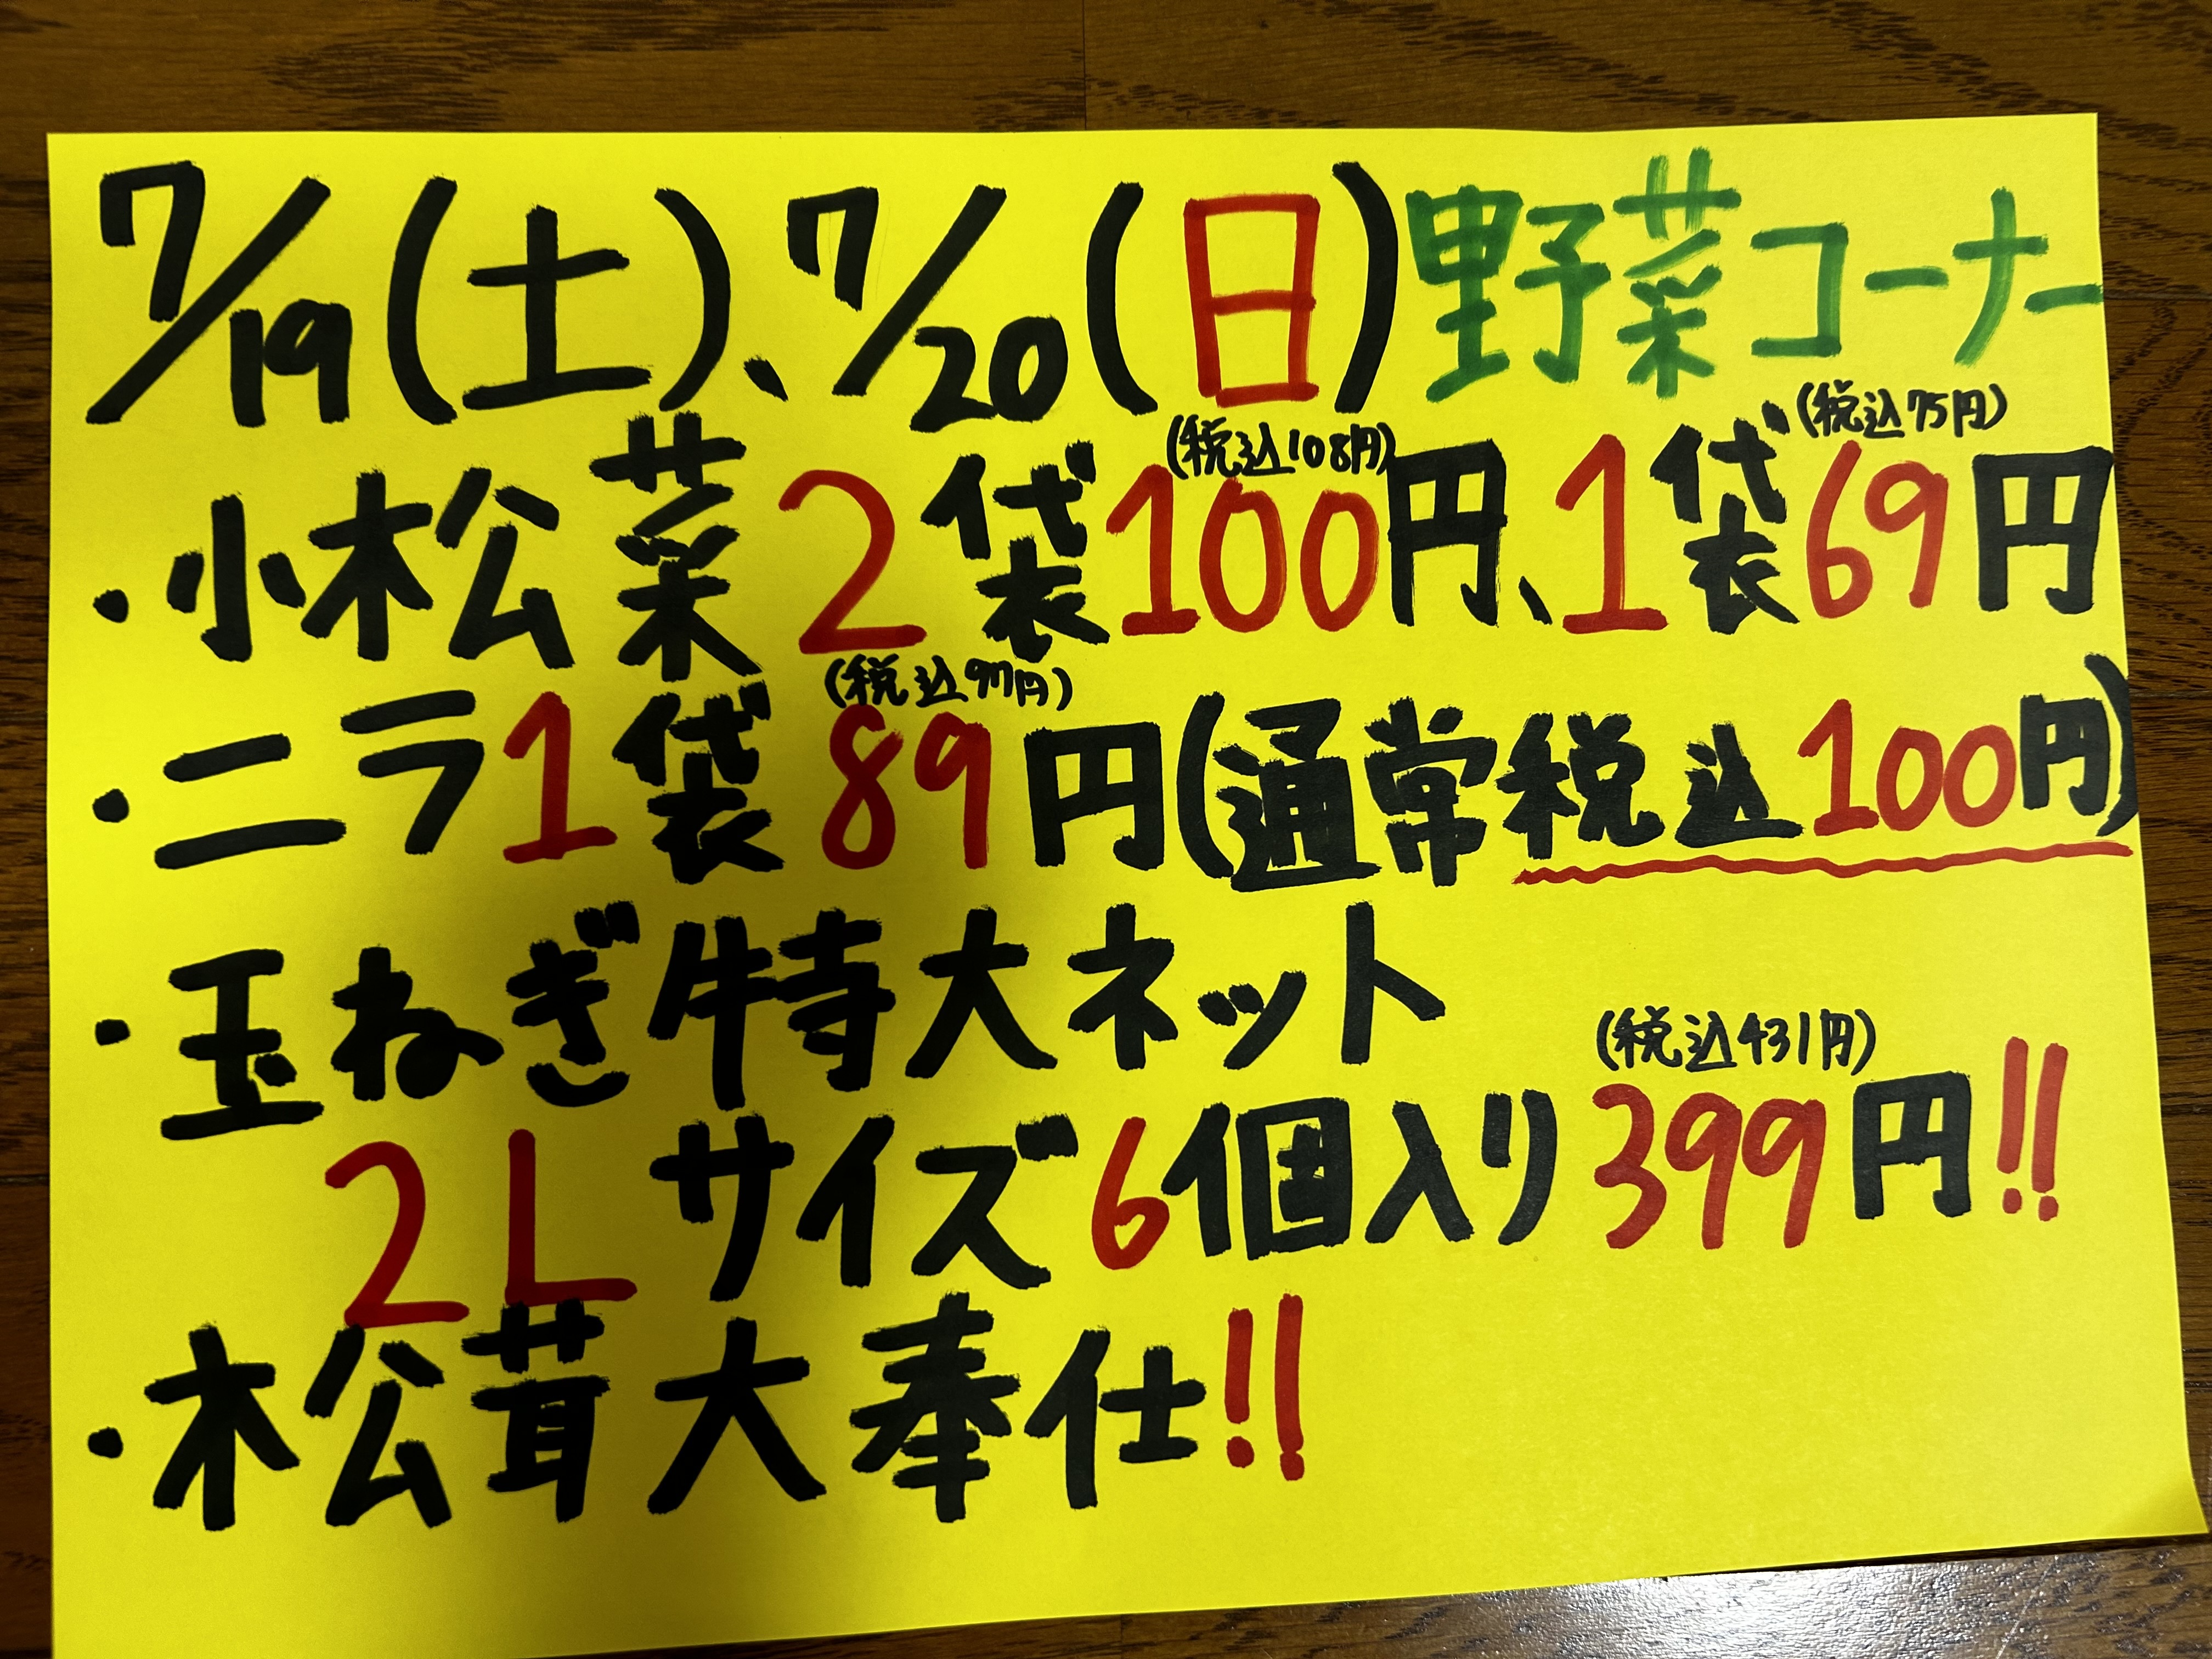 7/19(土)、7/20(日)野菜コーナー
・小松菜2袋100円(税込108円)、1袋69円(税込75円)
・ニラ1袋89円(税込97円)(通常税込100円)
・玉ねぎ特大ネット
2Lサイズ6個入り399円(税込431円)!!
・松茸大奉仕!!